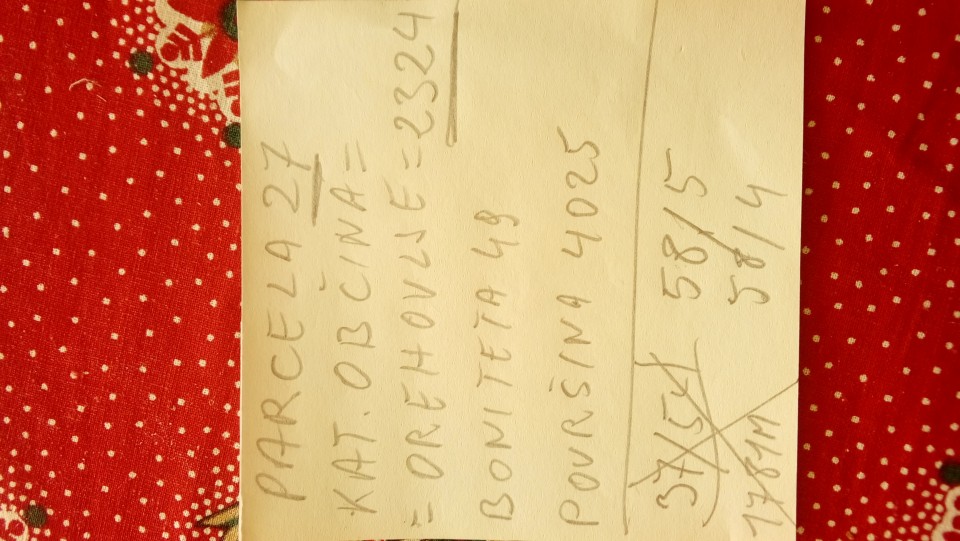 PARCELA 27
KAT. OBČINA =
= OREHOVLJE = 2324
BONITETA 49
POVRŠINA 4025
37/54 58/5
1781M 58/4